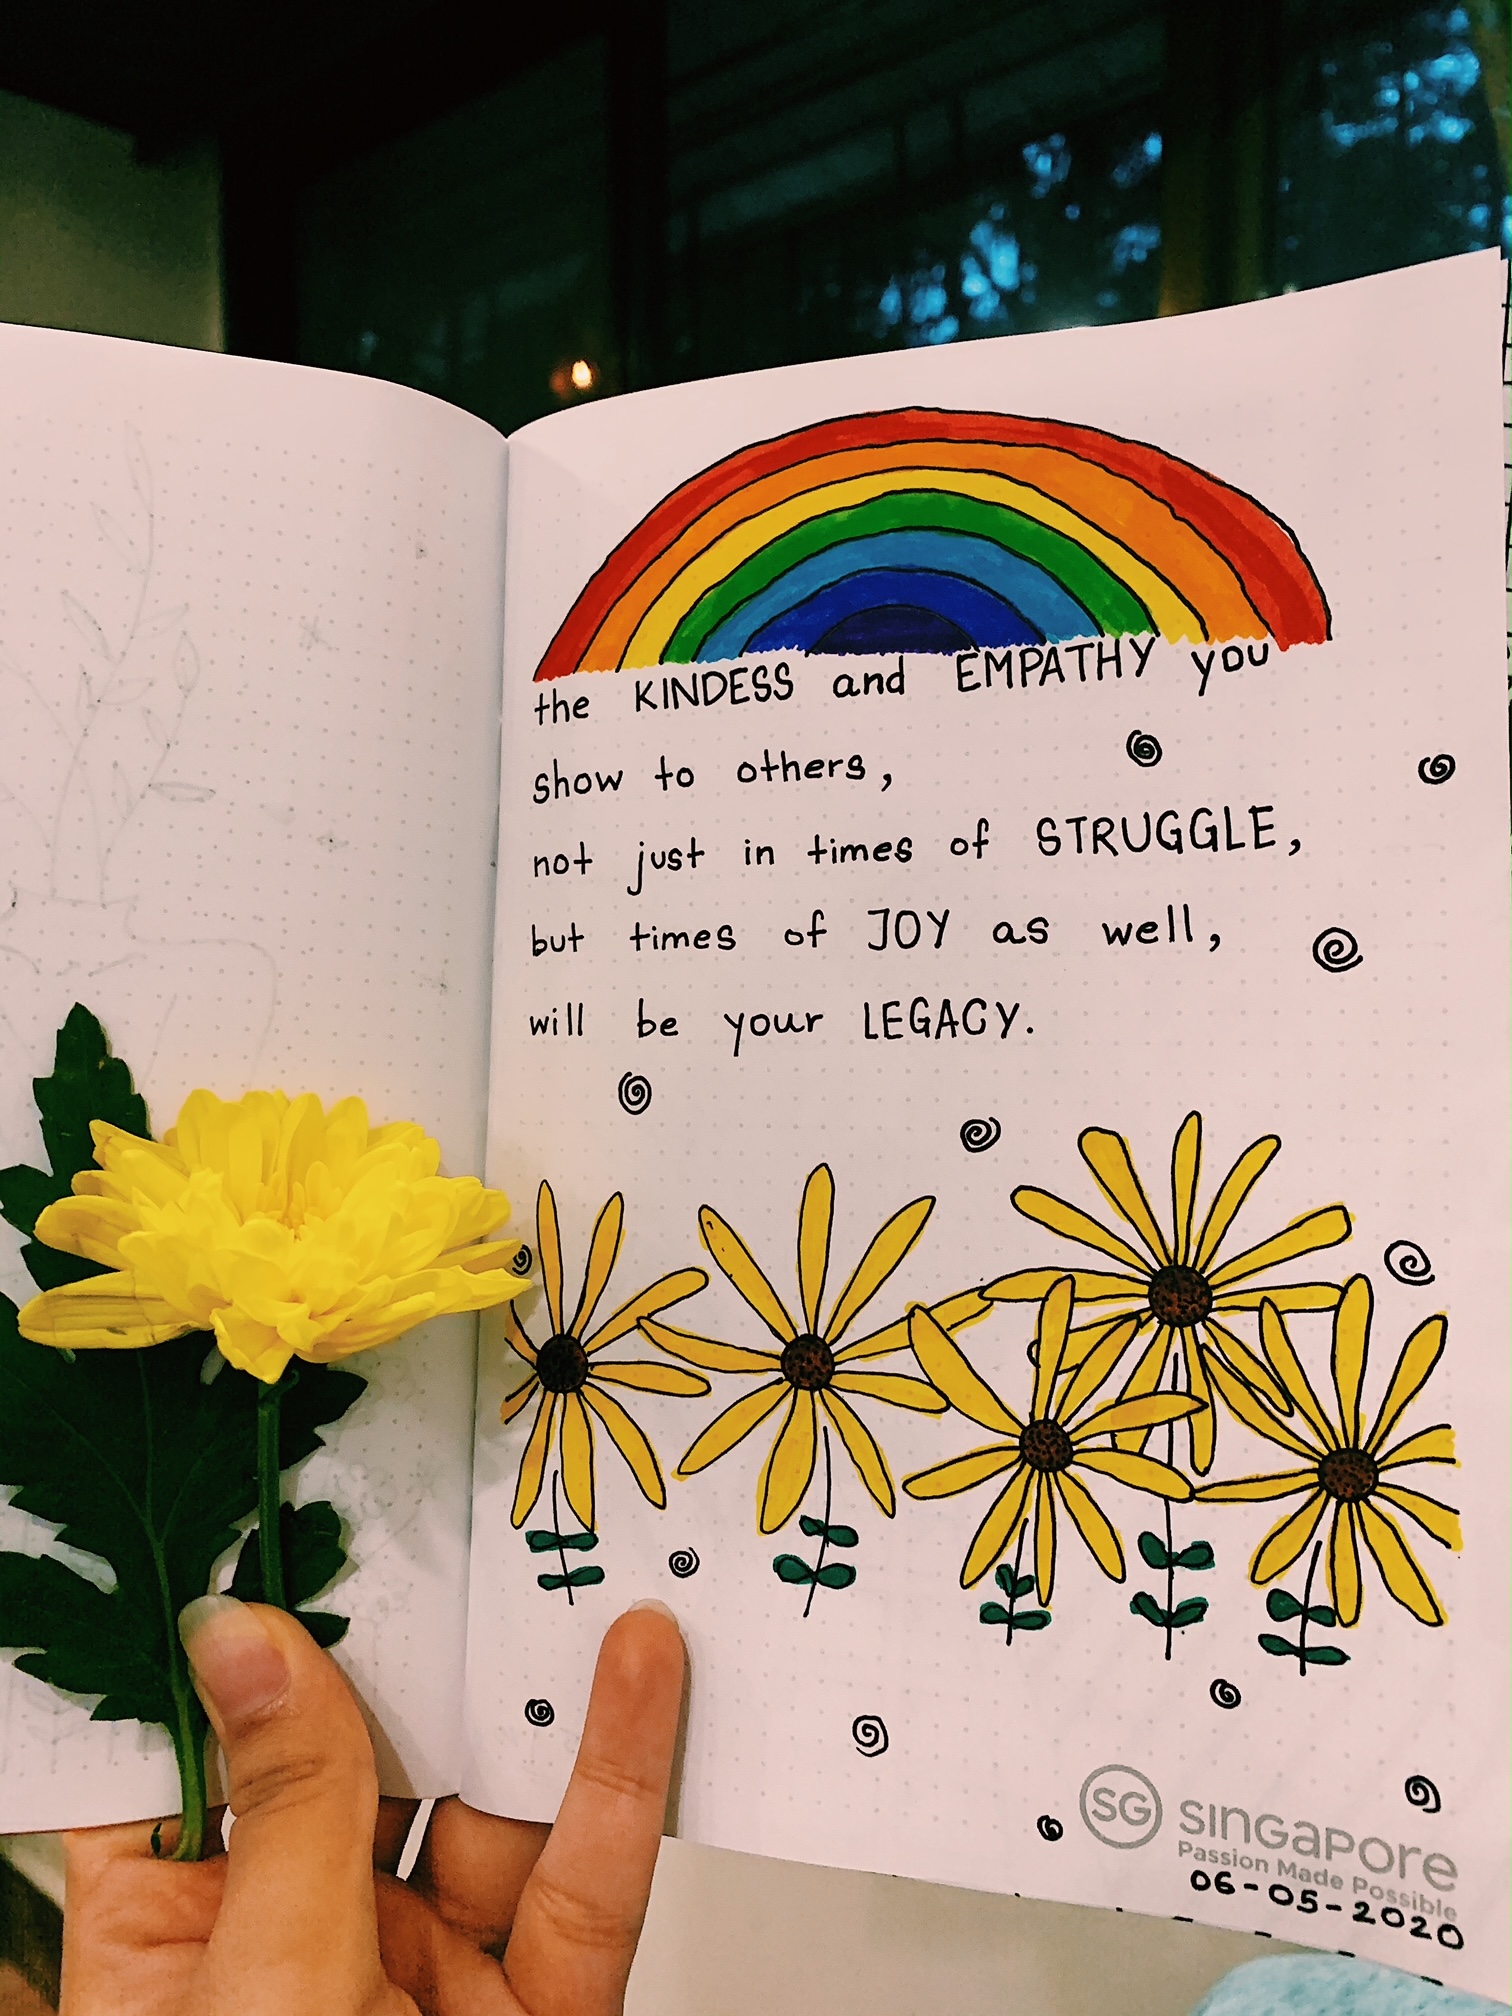 the KINDESS and EMPATHY you
show to others,
not just in times of STRUGGLE,
but times of JOY as well,
will be your LEGACY.
SG SINGAPORE
Passion Made Possible
06-05-2020